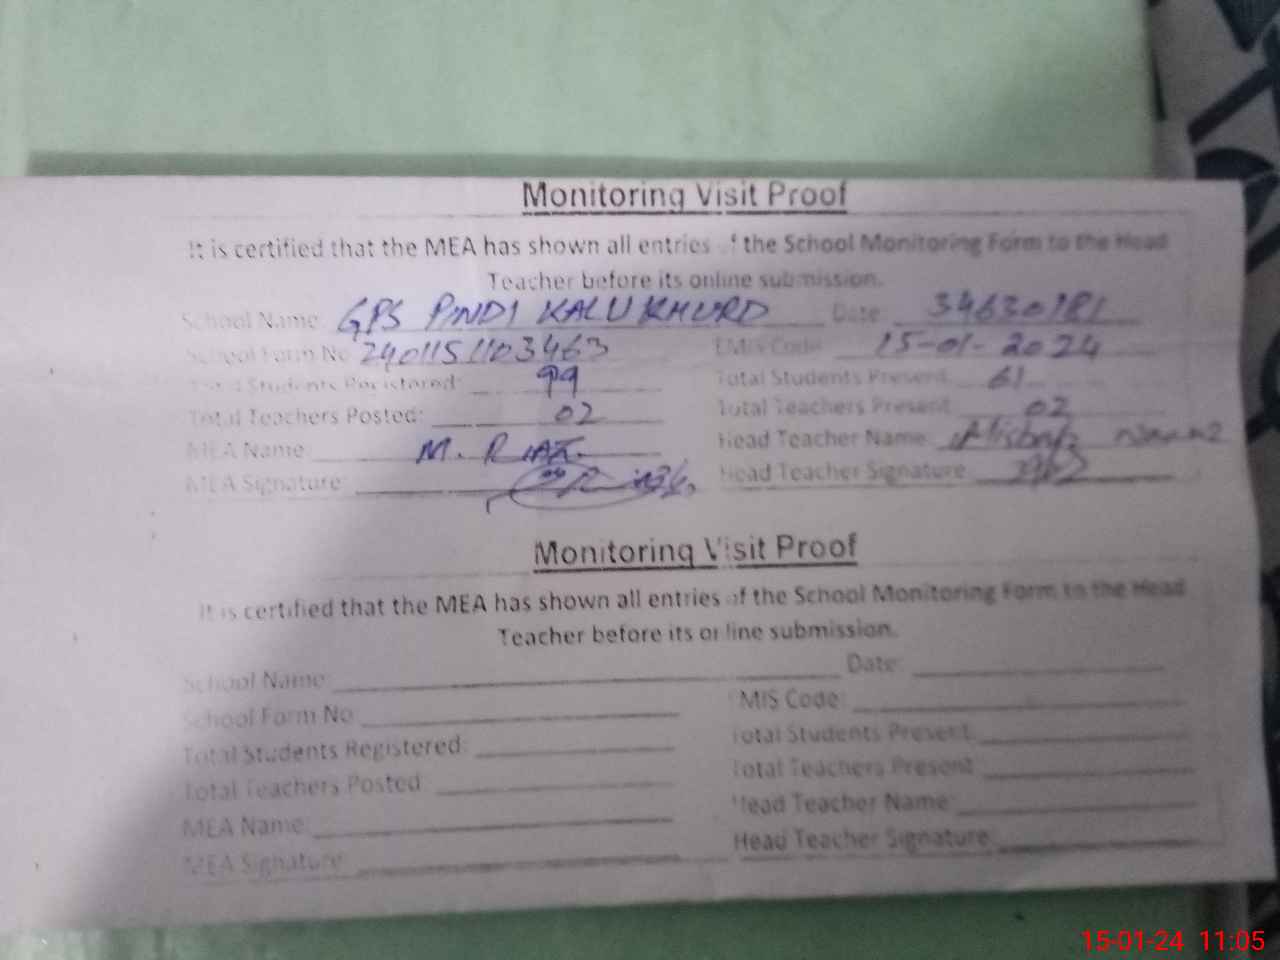 Monitoring Visit Proof
It is certified that the MEA has shown all entries of the School Monitoring Form to the Head
Teacher before its online submission.
School Name: GPS PINDI KALU KHURD Date: 34630181
School Form No 2401151103463 EMIS Code: 15-01-2024
Total Students Registered: 99 Total Students Present: 61
Total Teachers Posted: 02 Total Teachers Present 02
MEA Name: M. RIAZ. Head Teacher Name:
MEA Signature: Head Teacher Signature
Monitoring Visit Proof
It is certified that the MEA has shown all entries of the School Monitoring Form to the Head
Teacher before its online submission.
School Name: Date:
School Form No EMIS Code:
Total Students Registered: Total Students Present:
Total Teachers Posted Total Teachers Present
MEA Name: Head Teacher Name:
MEA Signature: Head Teacher Signature:
15-01-24 11:05